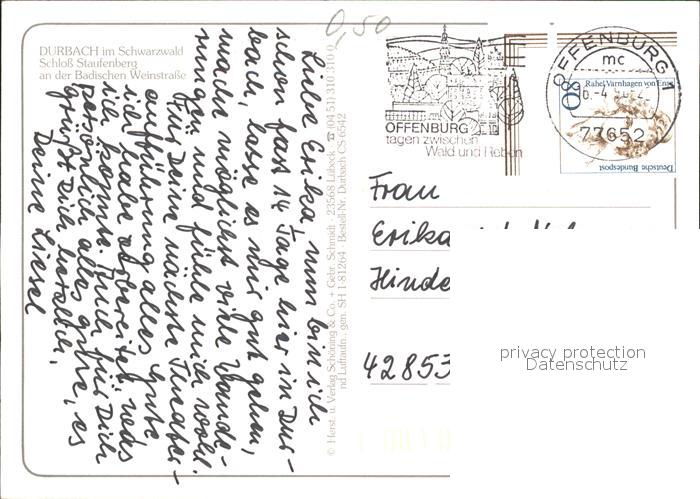 0,50
DURBACH im Schwarzwald
Schloß Staufenberg
an der Badischen Weinstraße
Liebe Erika nun bin ich
schon fast 14 Tage hier in Dur-
bach, lasse es mir gut gehen,
mache möglichst viele Wande-
rungen und fühle mich wohl.
Für Deine nächste Theater-
aufführung alles Gute
ich
ich komme. Auch für Dich
persönlich alles Gute, es
grüßt Dich herzlich,
Deine Liesel
© Herst. u. Verlag Schöning & Co. + Gebr. Schmidt · 23568 Lübeck ☎ (04 51) 310 310
nd Luftaufn., gen. SH 1-81264 · Bestell-Nr. Durbach CS 6542
OFFENBURG
tagen zwischen
Wald und Reben
OFFENBURG
mc
77652
80
Rahel Varnhagen von Ense
Deutsche Bundespost
Frau
Erika
Hinde
42853
privacy protection
Datenschutz